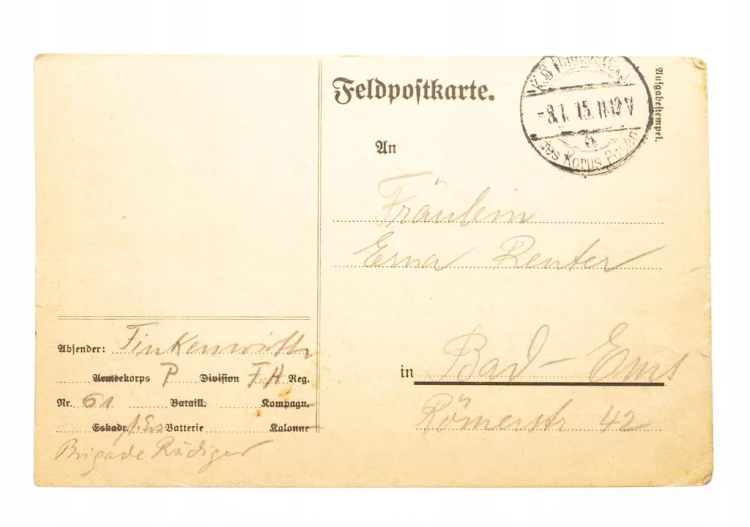 Feldpostkarte.
-8.1.15. 11-12 V
des Korps Posen
Aufgabestempel.
An
Fräulein
Erna Renter
in Bad-Ems
Römerstr 42
Absender: Finkenwirth
Armeekorps P Division F.A Reg.
Nr. 61 Bataill. Kompagn.
Eskadr. Batterie Kolonne
Brigade Rüdiger